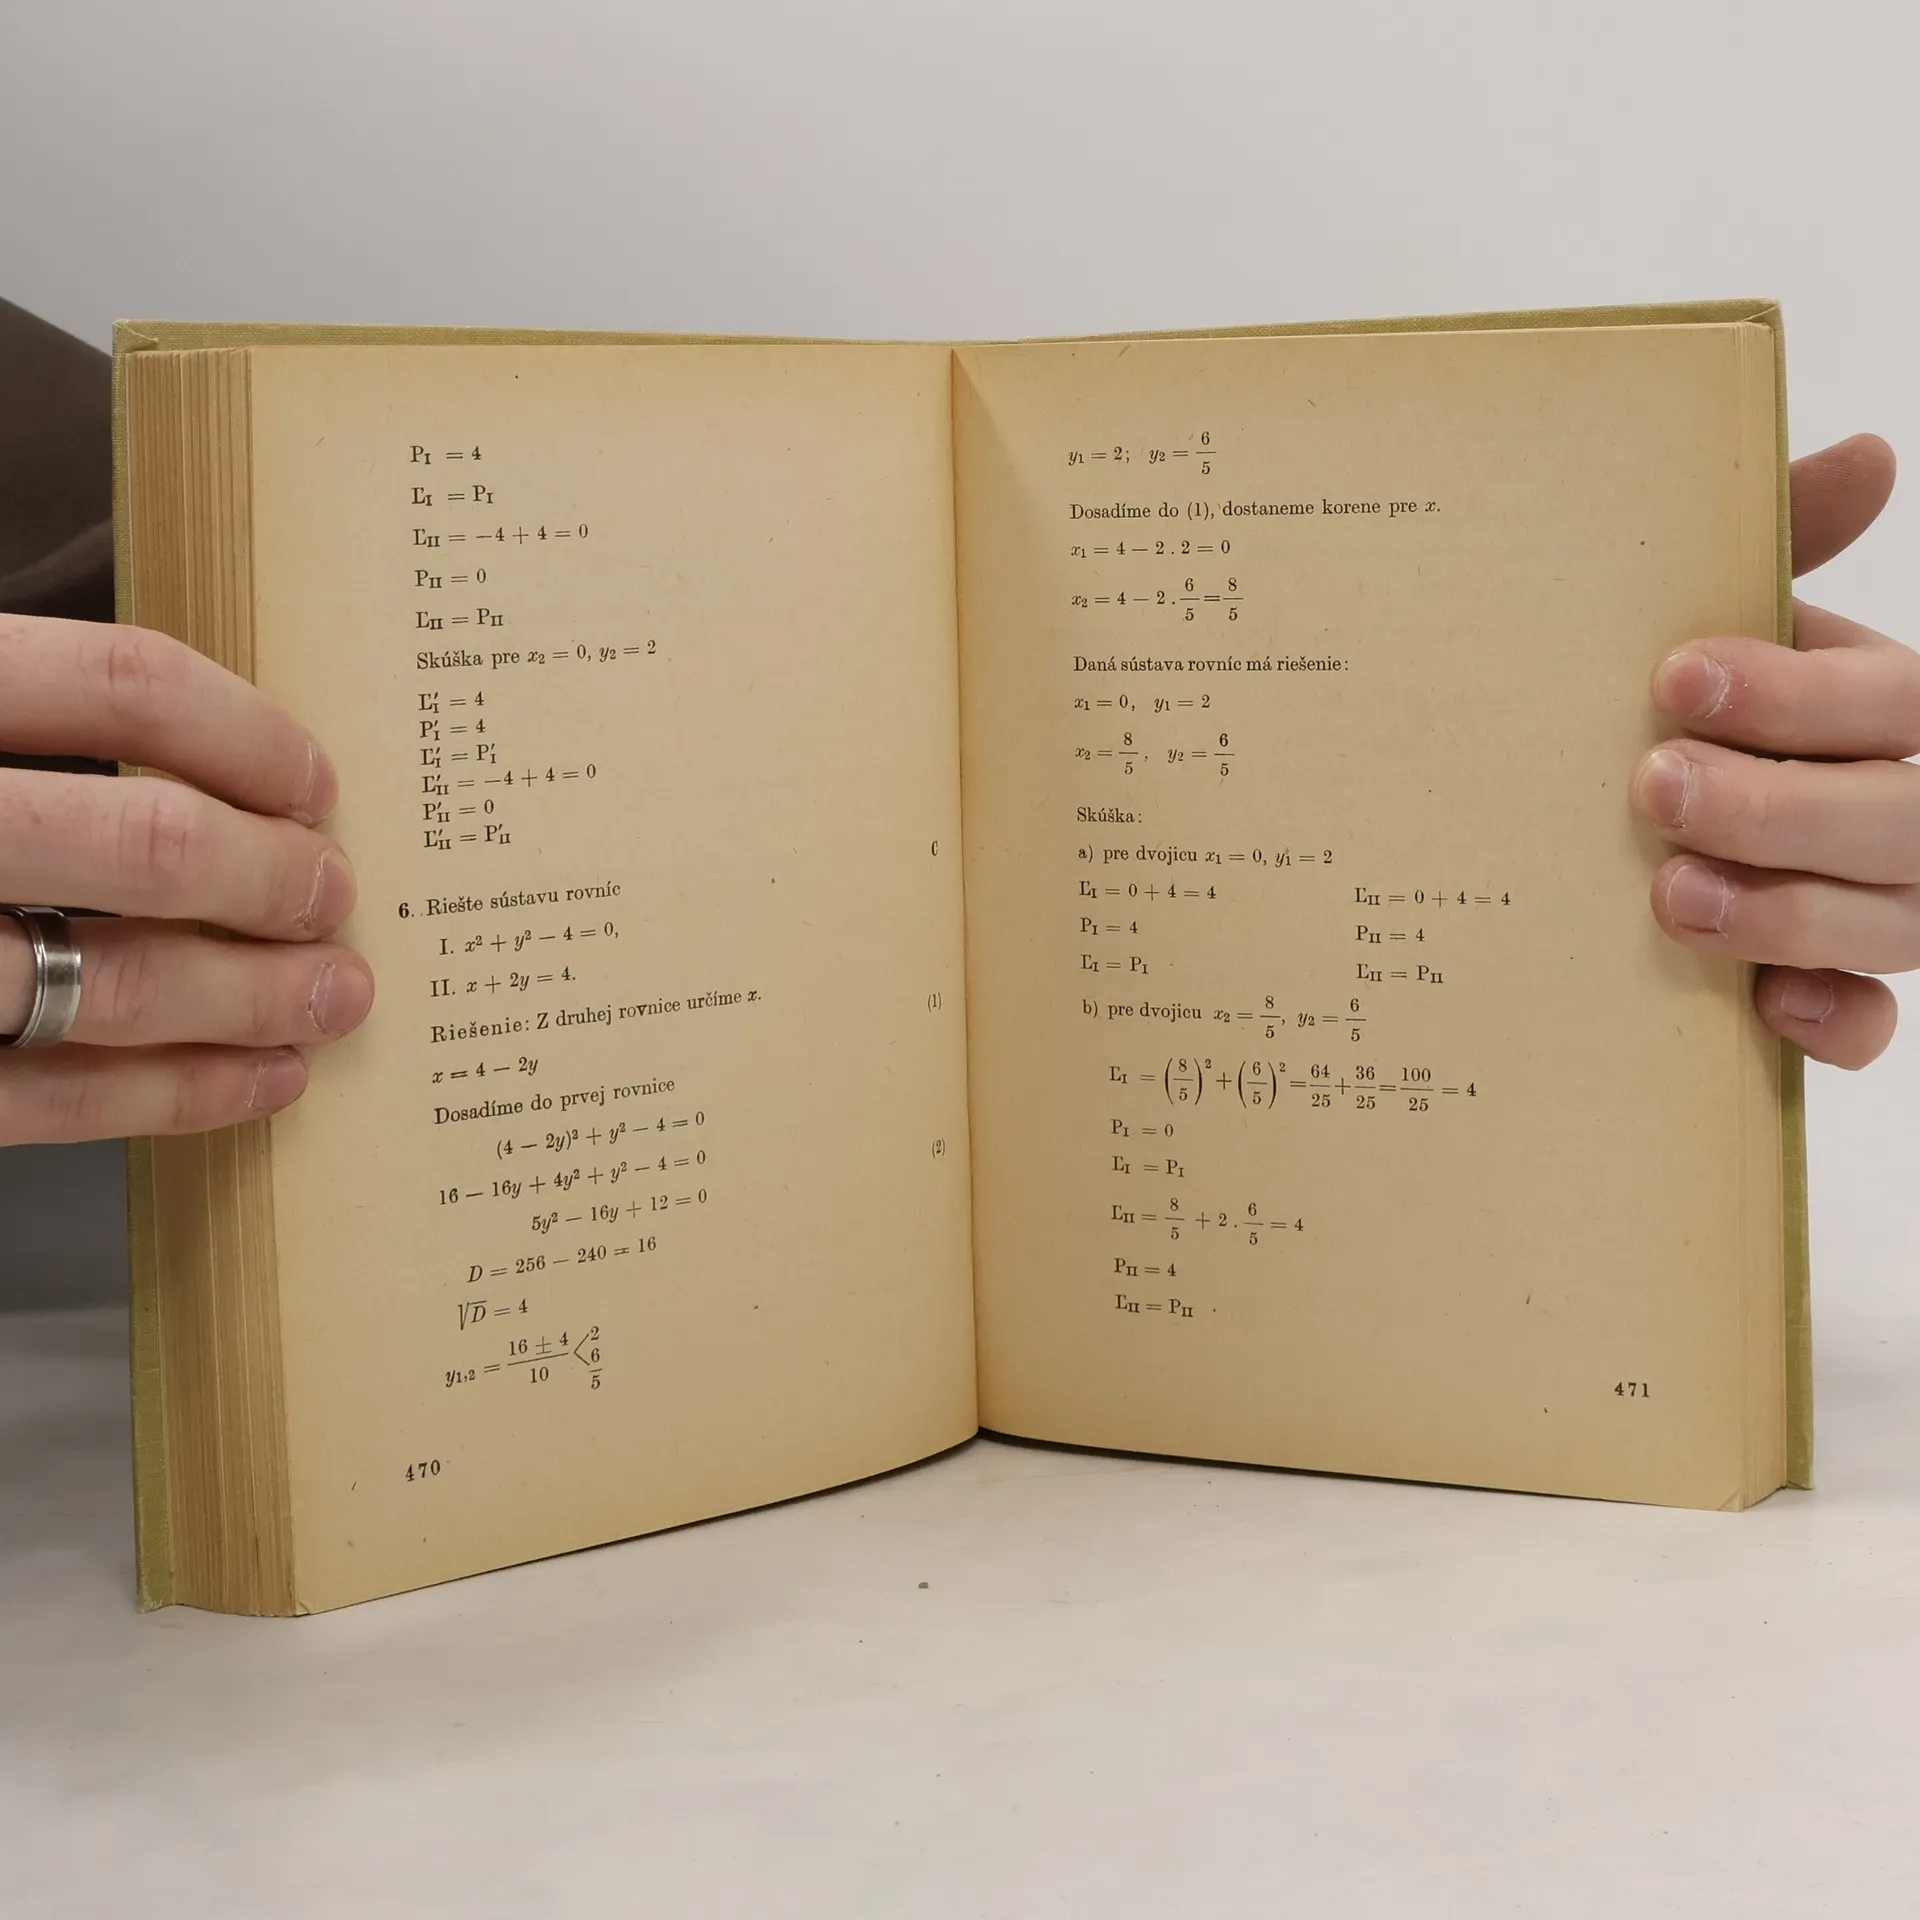 P_I = 4
Ľ_I = P_I
Ľ_II = −4 + 4 = 0
P_II = 0
Ľ_II = P_II
Skúška pre x₂ = 0, y₂ = 2
Ľ′_I = 4
P′_I = 4
Ľ′_I = P′_I
Ľ′_II = −4 + 4 = 0
P′_II = 0
Ľ′_II = P′_II
6. Riešte sústavu rovníc
I. x² + y² − 4 = 0,
II. x + 2y = 4.
Riešenie: Z druhej rovnice určíme x.
x = 4 − 2y (1)
Dosadíme do prvej rovnice
(4 − 2y)² + y² − 4 = 0
16 − 16y + 4y² + y² − 4 = 0
5y² − 16y + 12 = 0 (2)
D = 256 − 240 = 16
√D = 4
y₁,₂ = (16 ± 4)/10 < 2, 6/5
470
y₁ = 2; y₂ = 6/5
Dosadíme do (1), dostaneme korene pre x.
x₁ = 4 − 2 . 2 = 0
x₂ = 4 − 2 . 6/5 = 8/5
Daná sústava rovníc má riešenie:
x₁ = 0, y₁ = 2
x₂ = 8/5, y₂ = 6/5
Skúška:
a) pre dvojicu x₁ = 0, y₁ = 2
Ľ_I = 0 + 4 = 4 Ľ_II = 0 + 4 = 4
P_I = 4 P_II = 4
Ľ_I = P_I Ľ_II = P_II
b) pre dvojicu x₂ = 8/5, y₂ = 6/5
Ľ_I = (8/5)² + (6/5)² = 64/25 + 36/25 = 100/25 = 4
P_I = 0
Ľ_I = P_I
Ľ_II = 8/5 + 2 . 6/5 = 4
P_II = 4
Ľ_II = P_II
471